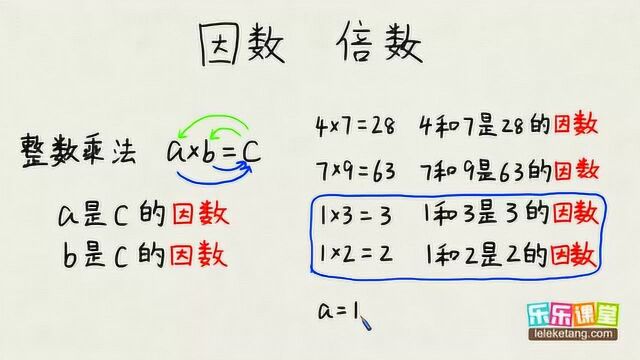 因数 倍数
整数乘法 a×b=c
a是c的因数
b是c的因数
4×7=28 4和7是28的因数
7×9=63 7和9是63的因数
1×3=3 1和3是3的因数
1×2=2 1和2是2的因数
a=1
乐乐课堂
leleketang.com